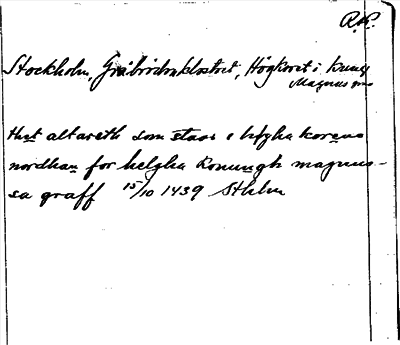 R.P.
Stockholm, Gråbrödraklostret, Högkoret i kung
Magnus
thet altareth som staar i høgha korens
nordhan for helgha konungh magnus-
sa graff 15/10 1439 Sthlm